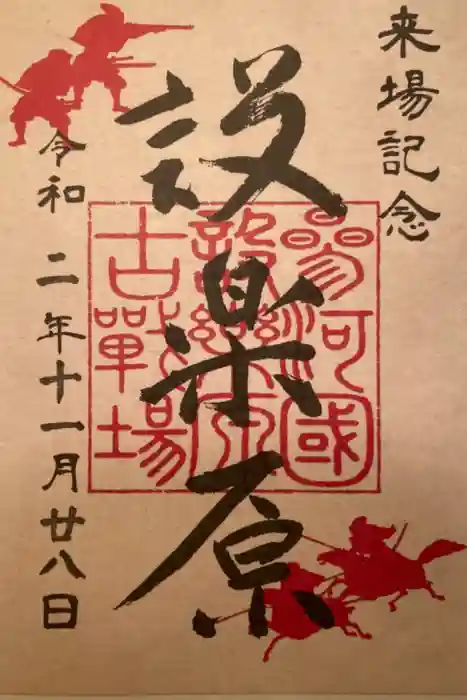 来場記念
設楽原
參河國
設樂原
古戰場
令和二年十一月廿八日